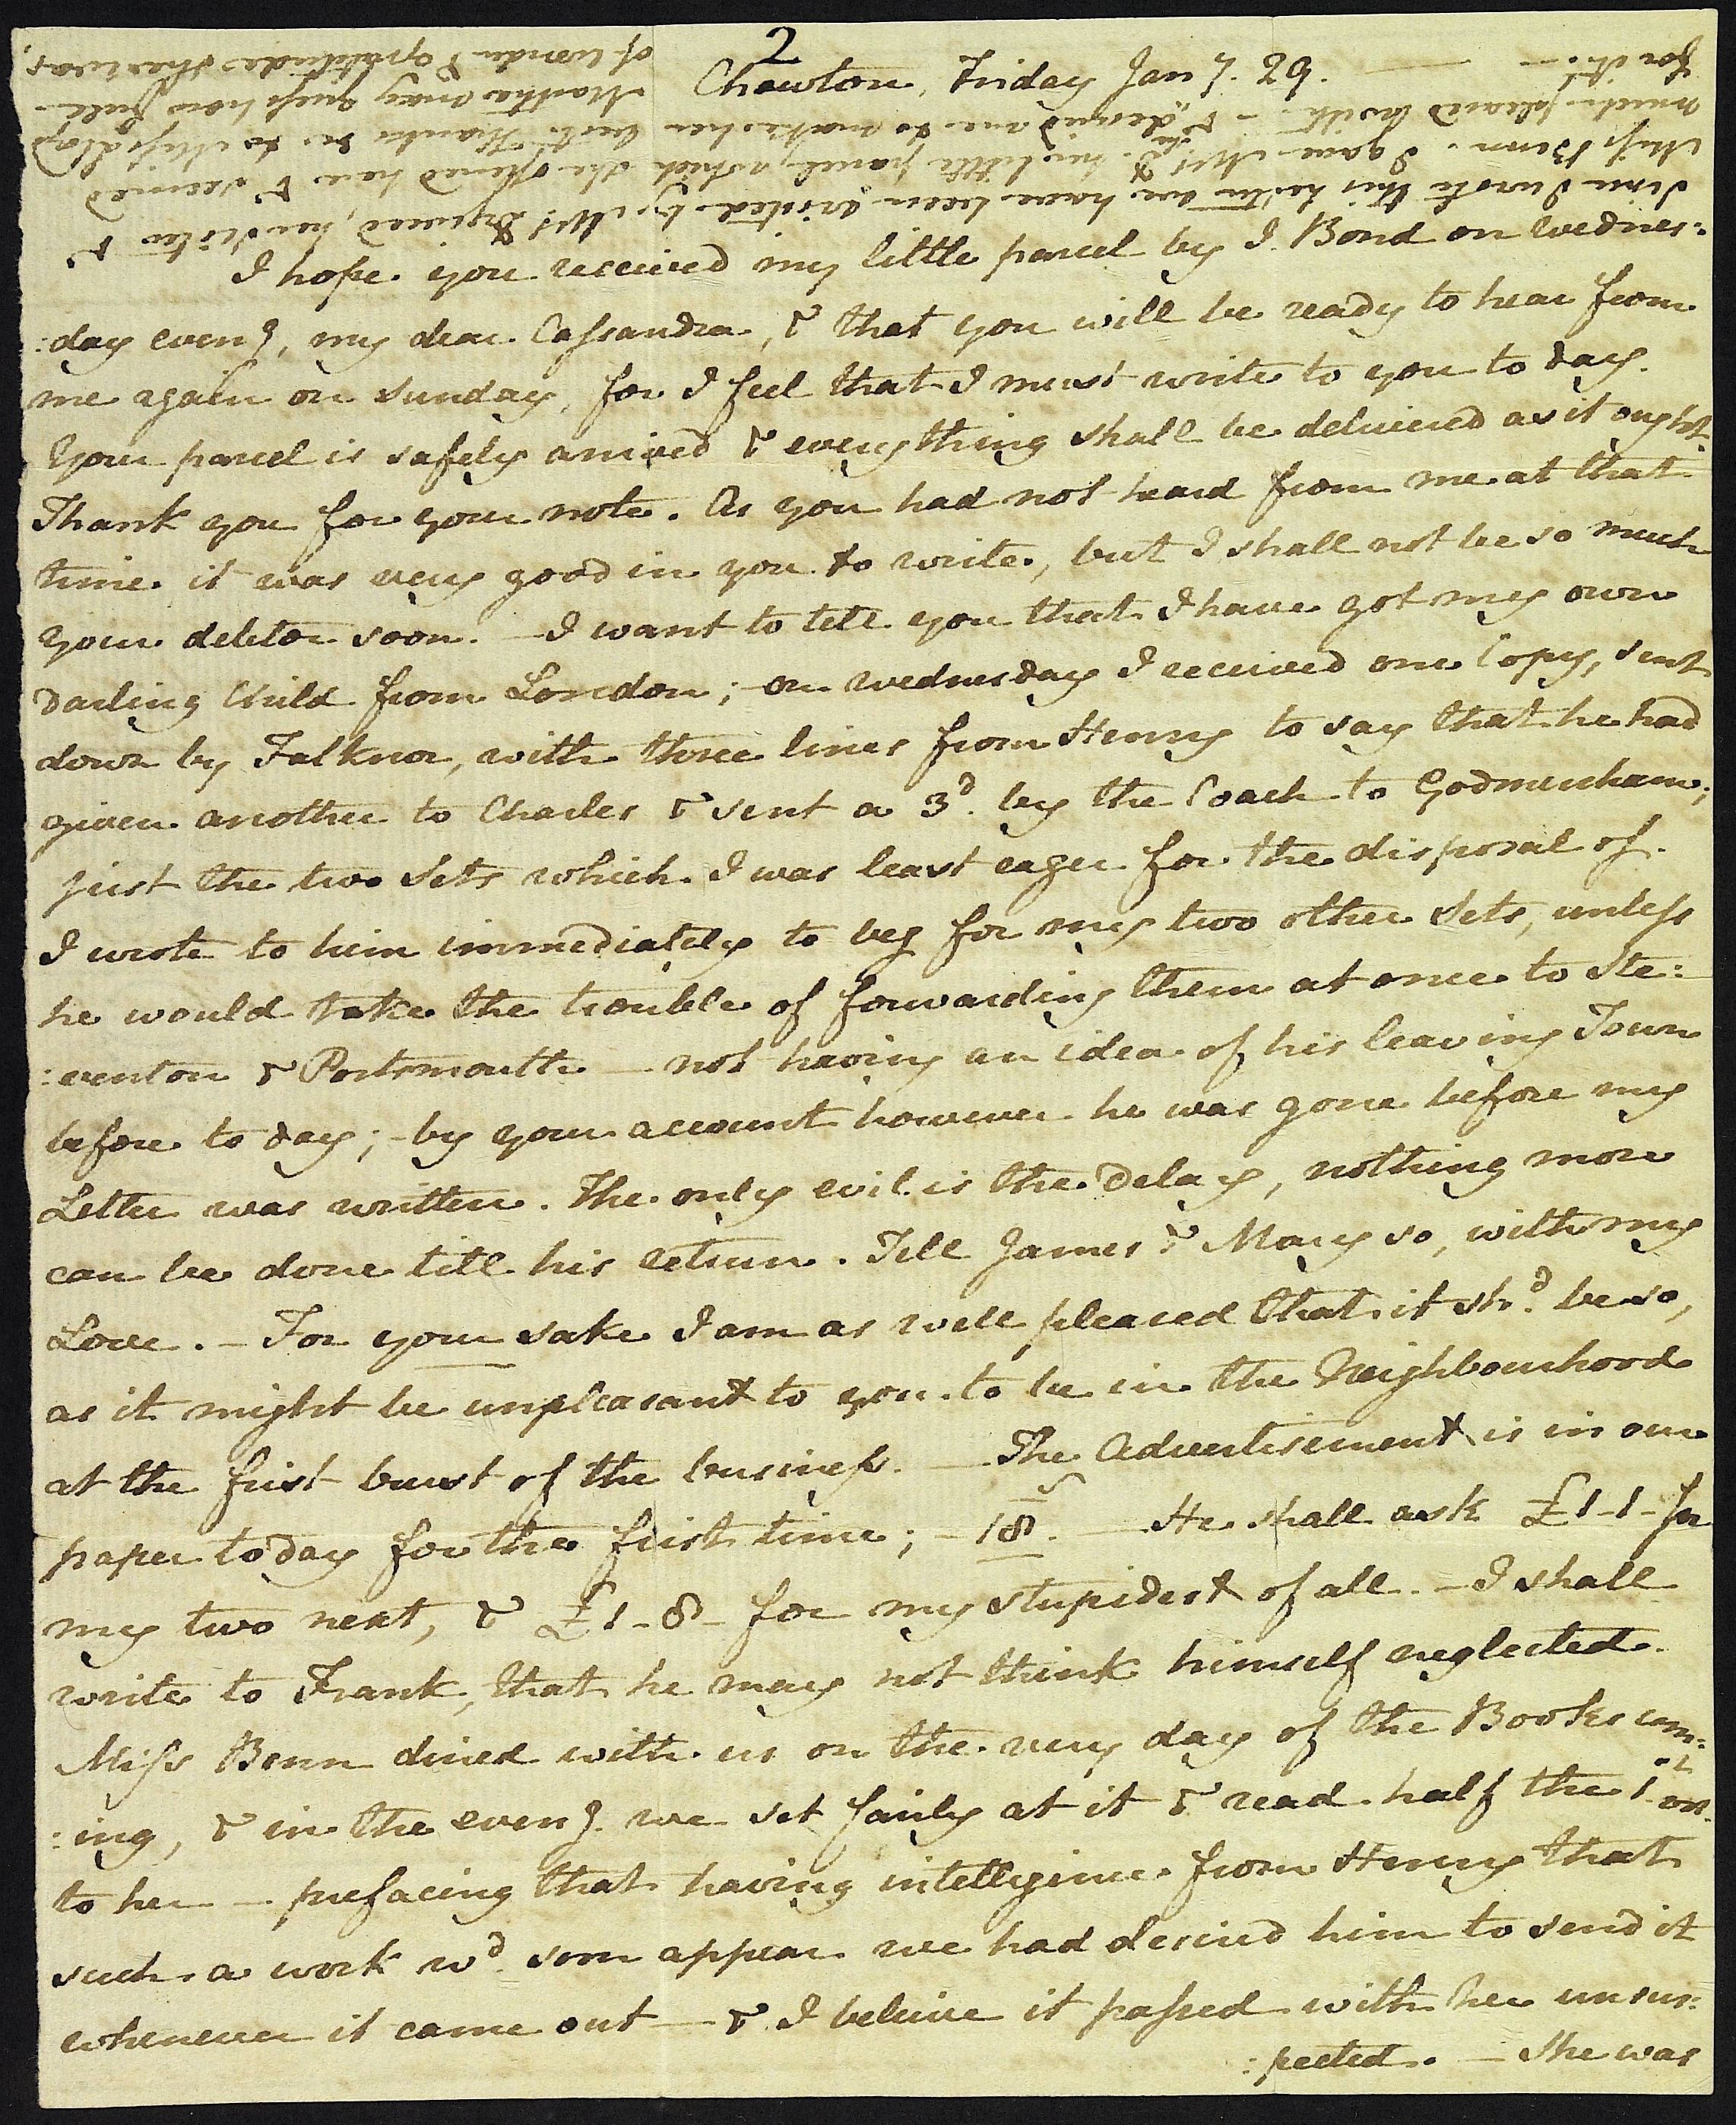 2
Chawton, Friday Jan^y. 29.
I hope you received my little parcel by J. Bond on Wednes:
:day even^g, my dear Cassandra, & that you will be ready to hear from
me again on Sunday, for I feel that I must write to you to day.
Your parcel is safely arrived & everything shall be delivered as it ought.
Thank you for your note. As you had not heard from me at that
time it was very good in you to write, but I shall not be so much
your debtor soon. — I want to tell you that I have got my own
darling Child from London; – on Wednesday I received one Copy, sent
down by Falknor, with three lines from Henry to say that he had
given another to Charles & sent a 3^d. by the Coach to Godmersham;
just the two Sets which I was least eager for the disposal of.
I wrote to him immediately to beg for my two other Sets, unless
he would take the trouble of forwarding them at once to Ste:
:venton & Portsmouth — not having an idea of his leaving Town
before to day; – by your account however he was gone before my
Letter was written. The only evil is the delay, nothing more
can be done till his return. Tell James & Mary so, with my
Love. – For your sake I am as well pleased that it sh^d. be so,
as it might be unpleasant to you to be in the Neighbourhood
at the first burst of the business. — The Advertisement is in our
paper to day for the first time; – 18^s. He shall ask £1-1- for
my two next, & £1-8- for my stupidest of all. – I shall
write to Frank, that he may not think himself neglected.
Miss Benn dined with us on the very day of the Books com:
:ing, & in the even^g. we set fairly at it & read half the 1^st. vol.
to her — prefacing that having intelligence from Henry that
such a work w^d. soon appear we had desired him to send it
whenever it came out — & I beleive it passed with her unsus:
:pected. — She was
Since I wrote this Letter we have been visited by M^rs Digweed, her Sister &
Miss Benn. I gave M^rs D. her little parcel, which she opened here & seemed
much pleased with – & she desired me to make her best Thanks &c to Miss Lloyd
for it. — Martha may guess how full
of wonder & gratitude she was.